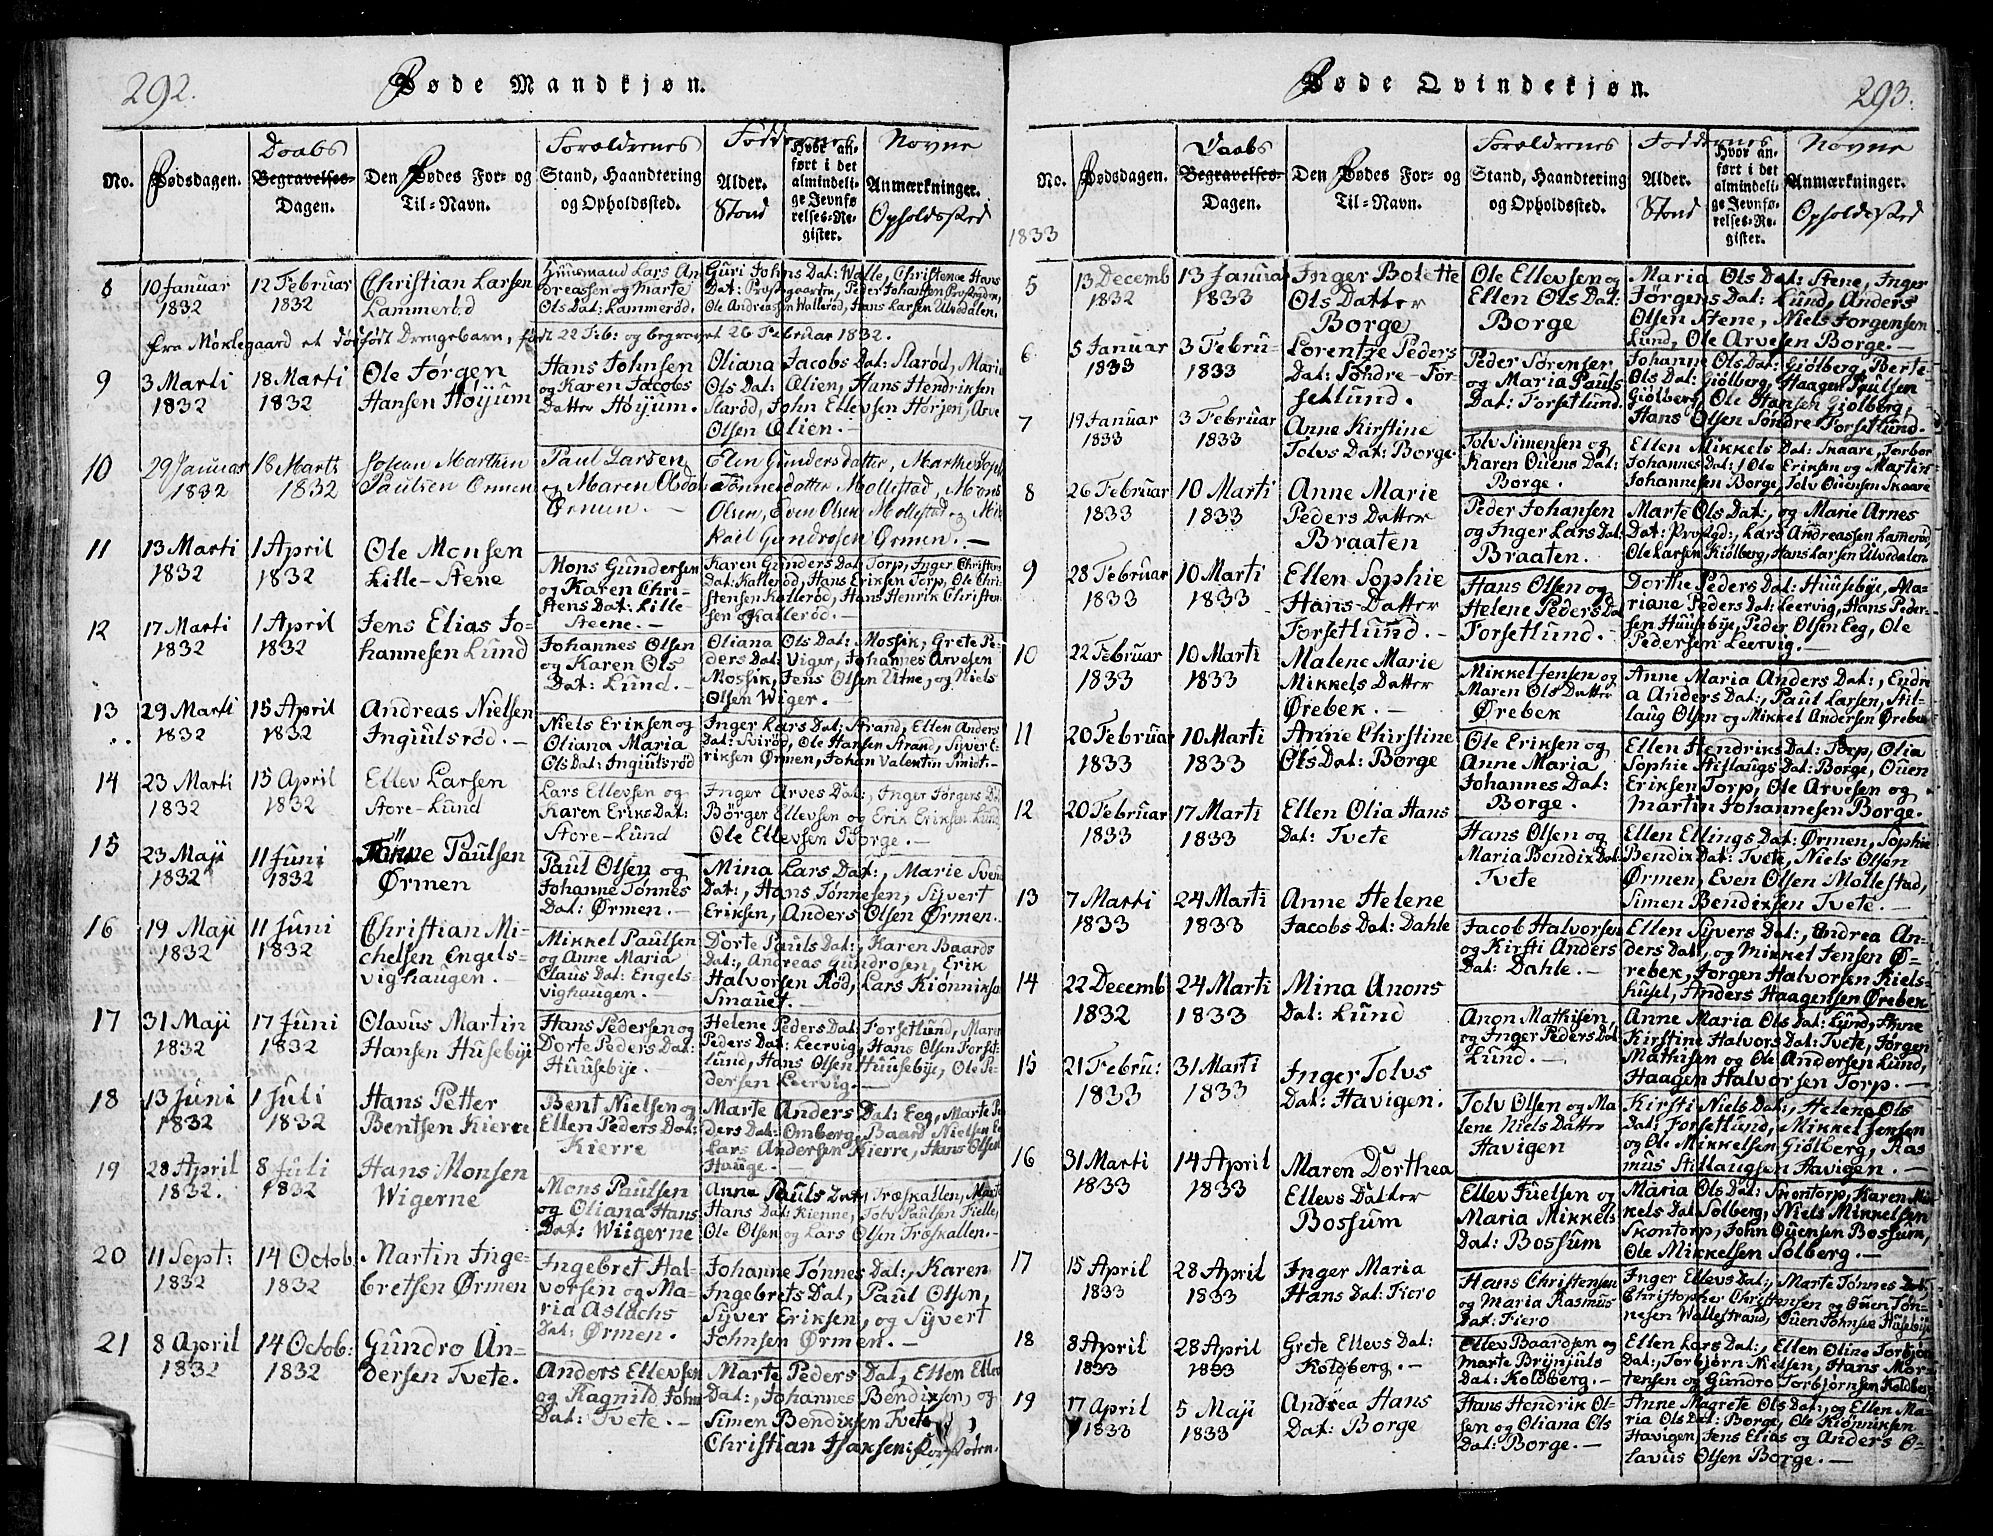 292.
Føde Mandkjøn.
No.
Fødsdagen.
Daabs
Begravelses-
Dagen.
Den Fødes For- og
Til-Navn.
Forældrenes
Stand, Haandtering
og Opholdssted.
Alder.
Stand
Hvor an-
ført i det
almindeli-
ge Jevnfø-
relses-Re-
gister.
Navne
Anmærkninger.
Opholdssted
8
10 Januar
1832
12 Februar
1832
Christian Larsen
Lammerød
Huusmand Lars An
dreassen og Marte
Ols Dat: Lammerød.
Guri Johns Dat: Walle, Christence Hans
Dat: Præstegaarten, Peder Johansen Præstegrden,
Ole Andreassen Wallerød, Hans Larsen Ulvedalen.
Fra Møklegaard et dødfødt Drengebarn, født 22 Feb: og begravet 26 Februar 1832.
9
3 Marti
1832
18 Marti
1832
Ole Jørgen
Hansen Høijum
Hans Johnsen
og Karen Jacobs
Datter Høijum.
Oliana Jacobs Dat: Slarød, Maria
Ols Dat: Ølien, Hans Hendriksen
Slarød, John Ellevsen Hørjen, Arve
Olsen Ølien.
10
29 Januar
1832
18 Marts
1832
Johan Marthin
Paulsen Ørmen
Paul Larsen
og Maren Olsdat
Ørmen.
Elen Gundersdatter, Marthe
Tønnesdatter Mollestad, Mons
Olsen, Even Olsen Mollestad og Mi
kail Gundrosen Ørmen.
11
13 Marti
1832
1 April
1832
Ole Monsen
Lille-Stene
Mons Gundersen
og Karen Chri-
stens Dat: Lille-
Steene.
Karen Gunders Dat: Torp, Inger Christens
Dat: Kallerød, Hans Eriksen Torp, Ole Chri-
stensen Kallerød, Hans Henrik Christen-
sen Kallerød.
12
17 Marti
1832
1 April
1832
Jens Elias Jo-
hannesen Lund
Johannes Olsen
og Karen Ols
Dat: Lund.
Oliana Ols Dat: Mossik, Grete Pe-
ders Dat: Viger, Johannes Arvesen
Mossik, Jens Olsen Utne, og Niels
Olsen Wiger.
13
29 Marti
1832
15 April
1832
Andreas Nielsen
Ingiulsrød.
Niels Eriksen og
Oliana Maria
Ols Dat: Ingiulsrød
Inger Lars Dat: Strand, Ellen Anders
Dat: Svirøp, Ole Hansen Strand, Sijvert E-
riksen Ørmen, Johan Valentin Smidt.
14
23 Marti
1832
15 April
1832
Ellev Larsen
Store-Lund
Lars Ellevsen og
Karen Eriks Dat:
Store-Lund
Inger Arves Dat:, Inger Jørgens Dat
Børger Ellevsen og Erik Eriksen Lund
Ole Ellevsen Borge.
15
23 Maji
1832
11 Juni
1832
Tönne Paulsen
Ørmen
Paul Olsen og
Johanne Tønnes
Dat: Ørmen.
Mina Lars Dat:, Marie Svend
Dat:, Hans Tønnesen, Sijvert
Eriksen, Anders Olsen Ørmen.
16
19 Maji
1832
11 Juni
1832
Christian Mi-
chelsen Engels-
vighaugen.
Mikkel Paulsen
og Anne Maria
Claus Dat: Engels-
vighaugen.
Dorte Pauls Dat:, Karen Baards
Dat:, Andreas Gundrosen, Erik
Halvorsen Rød, Lars Kiønniksen
Smauet.
17
31 Maji
1832
17 Juni
1832
Olavus Martin
Hansen Husebije
Hans Pedersen og
Dorte Peders Dat:
Huusebije.
Helene Peders Dat: Forsetlund, Maren
Peders Dat: Leervig, Hans Olsen Forset-
lund, Hans Olsen Huusebije, Ole Pe-
dersen Leervig.
18
13 Juni
1832
1 Juli
1832
Hans Petter
Bentsen Kierre
Bent Nielsen og
Ellen Peders Dat:
Kierre
Marte Anders Dat: Eeg, Marte Pe
ders Dat: Omberg, Baard Nielsen
Lars Andersen Kierre, Hans Olsen
Hauge.
19
28 April
1832.
8 Juli
1832
Hans Monsen
Wigerne
Mons Paulsen
og Oliana Hans
Dat: Wiigerne
Anna Pauls Dat: Træskallen, Marte
Hans Dat: Kienne, Tolv Paulsen Fielle,
Ole Olsen og Lars Olsen Træskallen.
20
11 Sept:
1832
14 Octob.
1832
Martin Inge-
bretsen Ørmen
Ingebret Hal-
vorsen og Ma-
ria Aslachs
Dat: Ørmen.
Johanne Tønnes Dal:, Karen
Ingebrets Dal, Paul Olsen,
Sijver Eriksen, og Sijvert
Johnsen Ørmen.
21
8 April
1832
14 Octob:
1832
Gundro An-
dersen Tvete.
Anders Ellevsen
og Ragnild John
Dat: Tvete.
Marte Peders Dal, Ellen Ellev
Dat:, Johannes Bendixsen, og
Simen Bendixsen Tvete
Christian Hansen
293.
Føde Qvindekjøn.
No.
1833
Fødsdagen.
Daabs
Begravelses-
Dagen.
Den Fødes For- og
Til-Navn.
Forældrenes
Stand, Haandtering
og Opholdssted.
Faddernes
Alder.
Stand
Hvor an-
ført i det
almindeli-
ge Jevnfø-
relses-Re-
gister.
Navne
Anmærkninger.
Opholdssted
5
13 Decemb
1832
13 Januar
1833
Inger Bolette
Ols Datter
Borge
Ole Ellevsen og
Ellen Ols Dat:
Borge
Maria Ols Dat: Stene, Inger
Jørgens Dat: Lund, Anders
Olsen Stene, Niels Jørgensen
Lund, Ole Arvesen Borge.
6
5 Januar
1833
3 Febru-
1833
Lorentze Peders
Dat: Søndre-For-
setlund.
Peder Sørensen
og Maria Pauls
Dat: Forsetlund.
Johanne Ols Dat: Giølberg, Berte
Ols Dat: Giølberg, Haagen Paulsen
Giølberg, Ole Hansen Giølberg,
Hans Olsen Søndre Forsetlund.
7
19 Januar
1833
3 Februar
1833
Anne Kirstine
Tolvs Dat: Borge
Tolv Simensen og
Karen Ouens Dat:
Borge.
Ellen Mikkels Dat: Skaare, Torbor
Johannes Dat:, Ole Eriksen og Martin
Johannesen Borge, Tolv Ouensen Skaare
8
26 Februar
1833
10 Marti
1833
Anne Marie
Peders Datter
Braaten
Peder Johansen
og Inger Lars Dat:
Braaten.
Marte Ols Dat:, og Marie Arnes
Dat: Præstgd:, Lars Andreassen Lamerød,
Ole Larsen Kiølberg, Hans Larsen Ulvedalen.
9
28 Februar
1833
10 Marti
1833
Ellen Sophie
Hans-Datter
Forsetlund.
Hans Olsen og
Helene Peders Dat
Forsetlund.
Dorthe Peders Dat: Huusebije, Ma-
riane Peders Dat: Leervig, Hans Peder-
sen Huusebije, Peder Olsen Eeg, Ole
Pedersen Leervig.
10
22 Februar
1833
10 Marti
1833
Malene Marie
Mikkels Datter
Ørebek.
Mikkel Jensen og
Maren Ols Datter
Ørebek
Anne Maria Anders Dat:, Endre
a Anders Dat:, Paul Larsen, Stil-
laug Olsen og Mikkel Andersen Ørebek
11
20 Februar
1833
10 Marti
1833
Anne Chirstine
Ols Dat: Borge
Ole Eriksen og
Anne Maria
Johannes Dat:
Borge.
Ellen Hendriks Dat: Torp, Olia
Sophie Stillaugs Dat: Borge, Ouen
Eriksen Torp, Ole Arvesen og
Martin Johannesen Borge.
12
20 Februar
1833
17 Marti
1833
Ellen Olia Hans
Dat: Tvete
Hans Olsen og
Maria Bendix Dat:
Tvete
Ellen Ellings Dat: Ørmen, Sophie
Bendix Dat: Tvete, Niels Olsen
Ørmen, Even Olsen Mollestad,
Simen Bendixsen Tvete.
13
7 Marti
1833
24 Marti
1833
Anne Helene
Jacobs Dat: Dahle
Jacob Halvorsen
og Kirsti Anders
Dat: Dahle.
Ellen Sijvers Dat:, Andrea An-
ders Dat:, og Mikkel Jensen Ø-
rebek, Jørgen Halvorsen Kiels-
huset, Anders Haagensen Ørebek
14
22 Decemb
1832
24 Marti
1833
Mina Anons
Dat: Lund
Anon Mathisen
og Inger Peders Dat
Lund.
Anne Maria Ols Dat: Lund, Anne
Kirstine Halvors Dat: Tvete, Jørgen
Mathisen og Ole Andersen Lund,
Haagen Halvorsen Torp.
15
21 Febru:
1833
31 Marti
1833
Inger Tolvs
Dat: Havigen.
Tolv Olsen og Ma
lene Niels Datter
Havigen
Kirsti Niels Dat:, Helene Ols
Dat: Forsetlund, Mikkel Jensen
og Ole Mikkelsen Giølberg, Ras
mus Stillaugsen Havigen.
16
31 Marti
1833
14 April
1833
Maren Dorthea
Ellevs Datter
Bossum
Ellev Juelsen og
Maria Mikkels
Dat: Bossum
Maria Ols Dat: Skontorp, Karen Mik
kels Dat Solberg, Niels Mikkelsen
Skontorp, John Ouensen Bossum,
Ole Mikkelsen Solberg.
17
15 April
1833
28 April
1833
Inger Maria
Hans Dat: Fiero
Hans Christensen
og Maria Rasmus
Dat: Fiero
Inger Ellevs Dat:, Marte Tønnes Dat:
Christopher Christensen og Ouen Tøn-
nesen Wallestrand, Ouen Johnsen Husebije
18
8 April
1833
28 April
1833
Grete Ellevs Dat:
Koldberg.
Ellev Baardsen og
Marte Brijnjuls
Dat: Koldberg.
Ellen Lars Dat:, Ellen Oline Torbjørn
Dat:, Torbjørn Nielsen, Hans Mor-
tensen og Gundro Torbjørnsen Koldberg
19
17 April
1833
5 Maji
1833
Andrea Hans
Dat: Borge
Hans Hendrik Ol-
sen og Oliana Ols
Dat: Borge.
Anne Magrete Ols Dat:, og Ellen Ma-
ria Ols Dat: Borge, Ole Kiønniksen
Havigen, Jens Elias og Anders O-
lavus Olsen Borge.